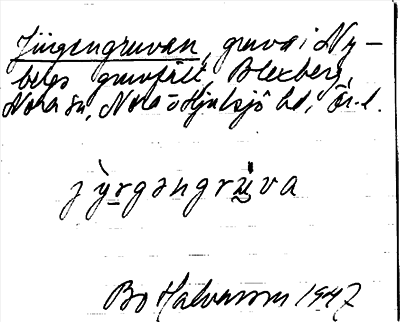 Jürgengruvan, gruva i Ny-
bergs gruvfält, Blexberg,
Nora sn, Nora o Hjulsjö hd, Ör. l.
jy̱rgəngrṳ̀va
Bo Halvarsson 1947